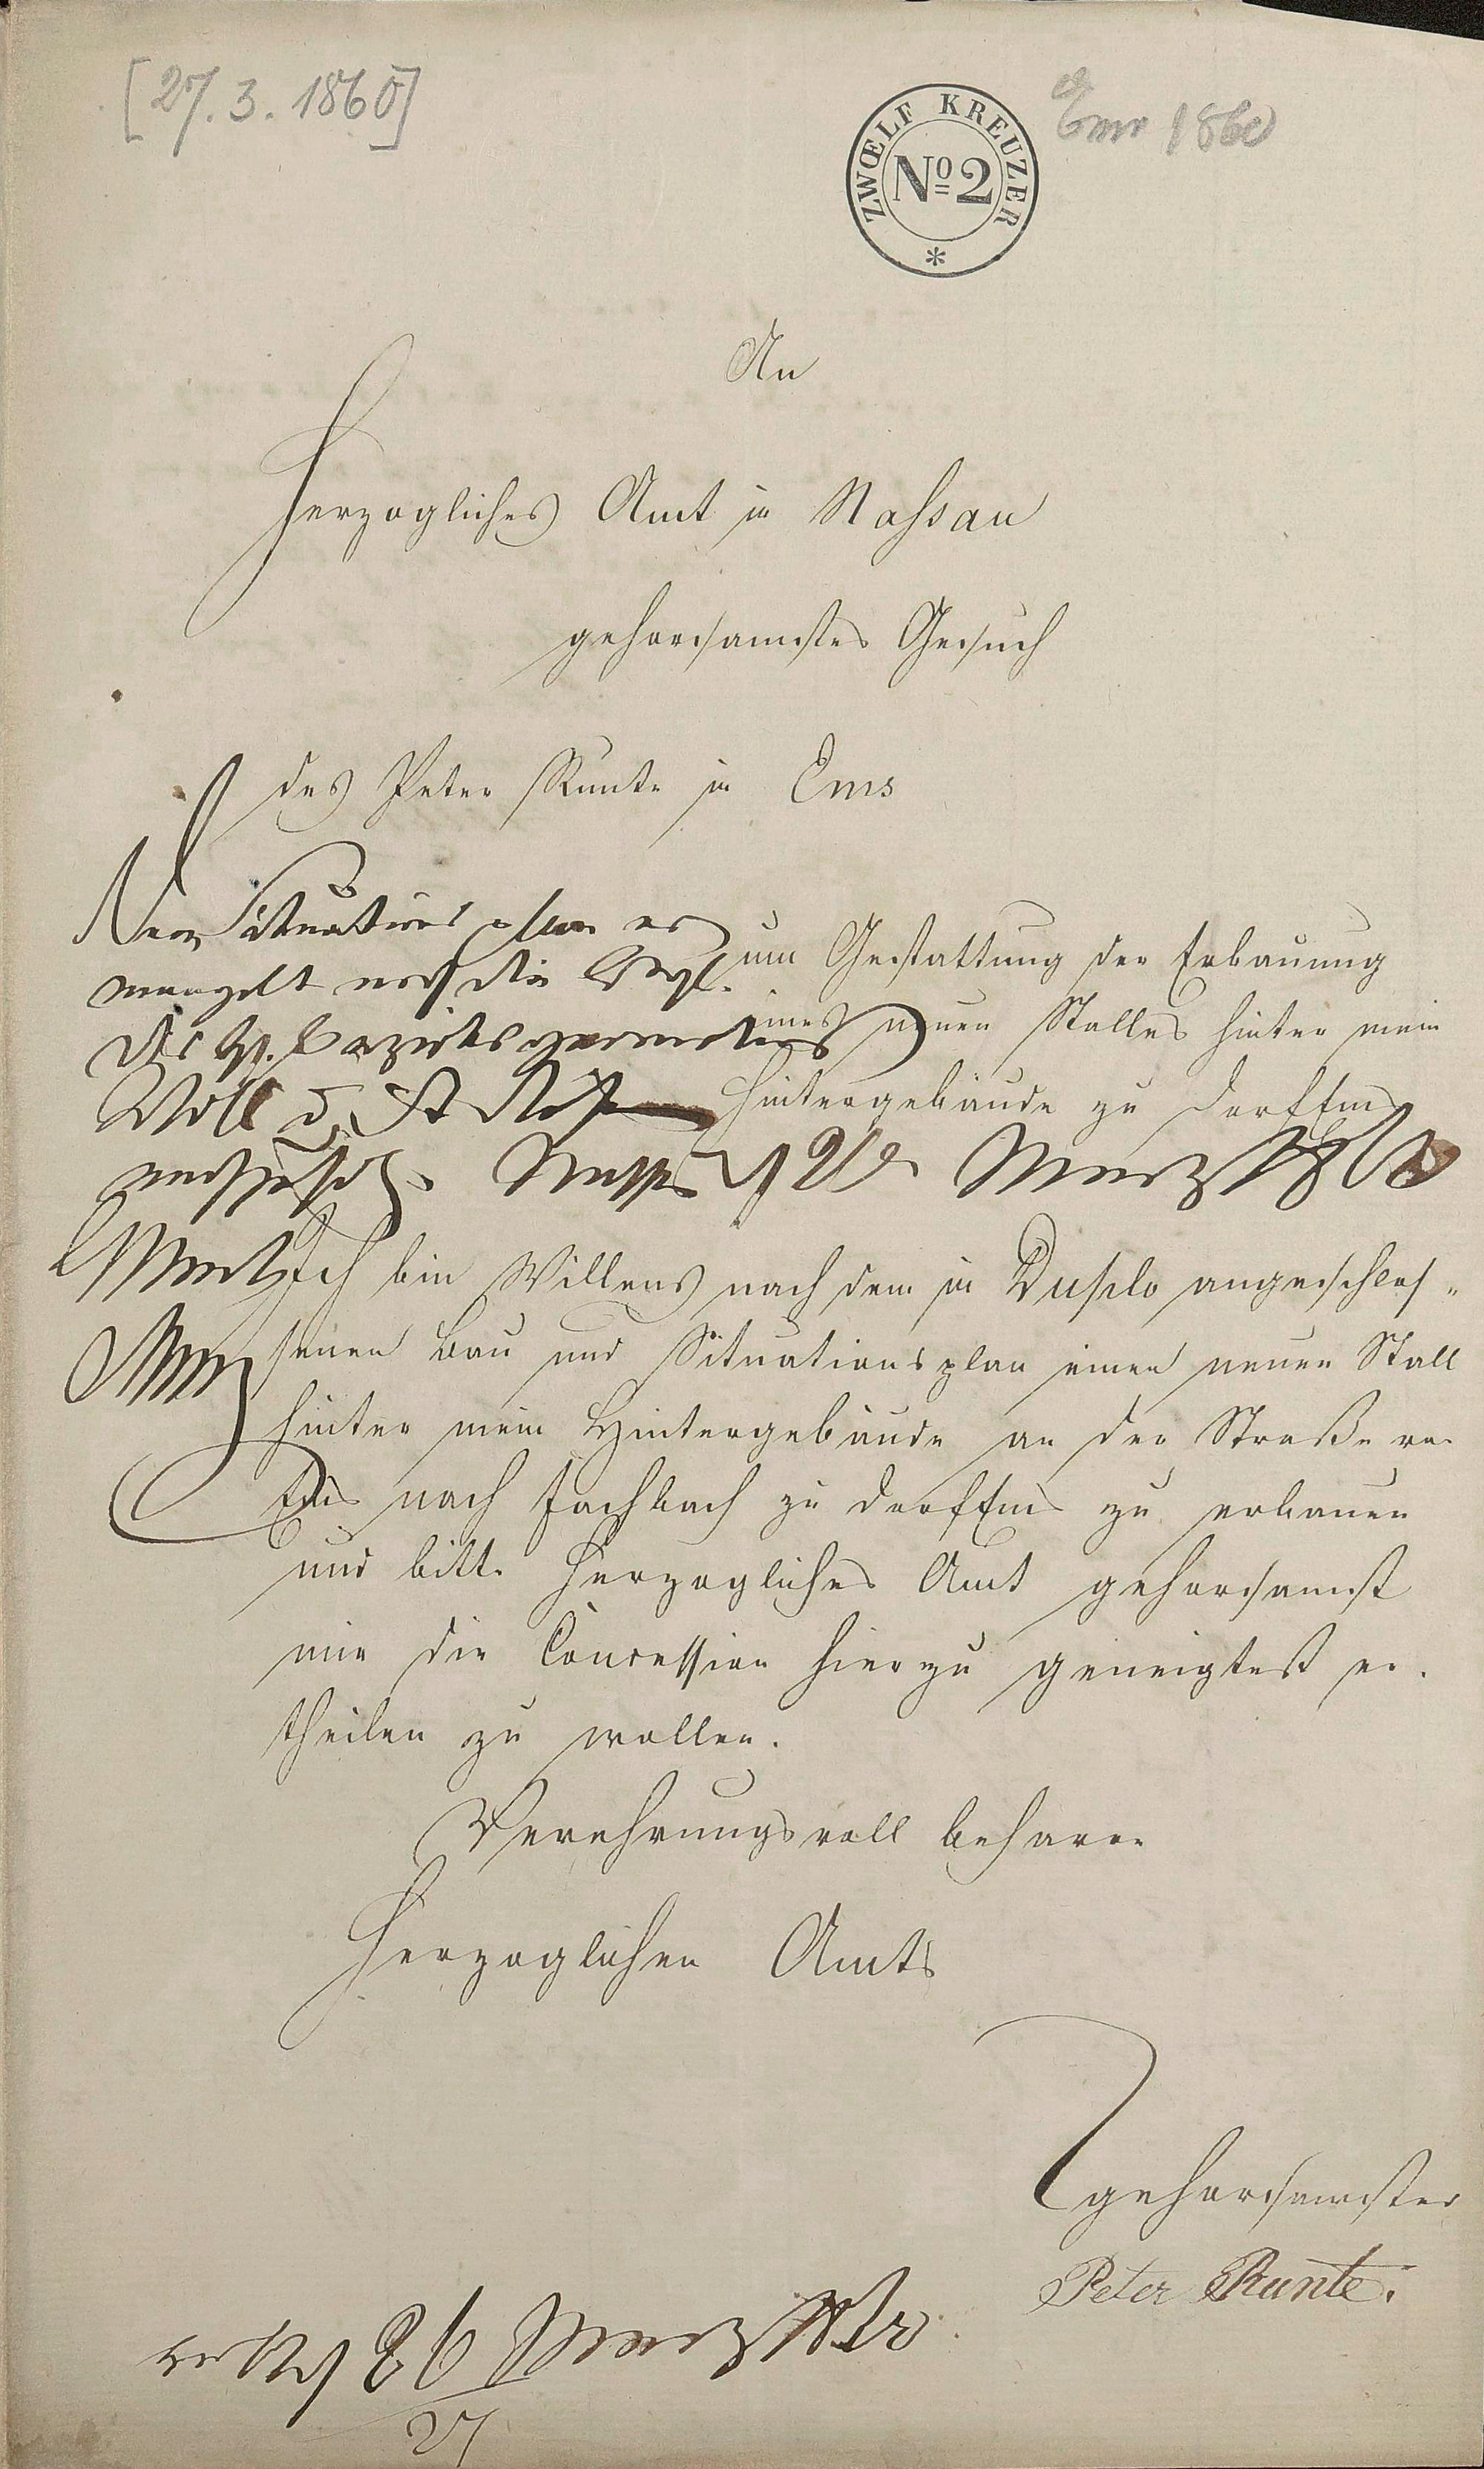 [27. 3. 1860]
Ems 1860
ZWŒLF KREUZER
No 2
An
Herzogliches Amt in Nassau
gehorsamstes Gesuch
des Peter Runte in Ems
um Gestattung der Erbauung
eines neuen Stalles hinter mein
Hintergebäude zu Dorf Ems
Dem Situationsplan er
mangelt noch die
des H. Bezirksgeometers
Nassau d 27 März 1860
Ich bin Willens nach dem in Duplo angeschlos„
senen Bau und Situationsplan einen neuen Stall
hinter mein Hintergebäude an der Straße von
Ems nach Fachbach zu Dorf Ems zu erbauen
und bitte Herzogliches Amt gehorsamst
mir die Concession hierzu geneigtest er„
theilen zu wollen.
Verehrungsvoll beharre
Herzoglichen Amts
gehorsamster
Peter Runte.
26 März 1860
27